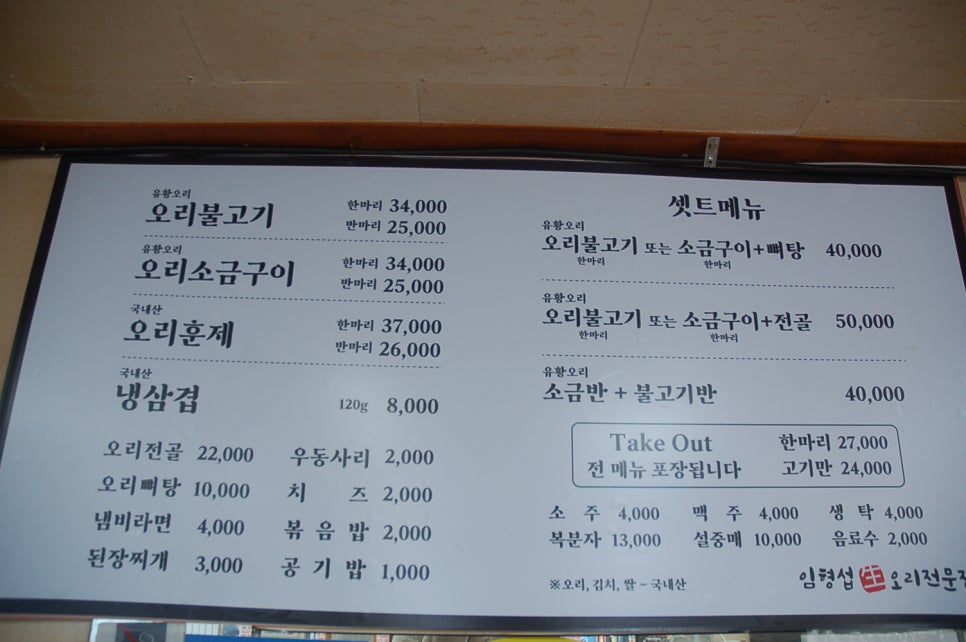 유황오리
오리불고기 한마리 34,000
반마리 25,000
유황오리
오리소금구이 한마리 34,000
반마리 25,000
국내산
오리훈제 한마리 37,000
반마리 26,000
국내산
냉삼겹 120g 8,000
오리전골 22,000 우동사리 2,000
오리뼈탕 10,000 치 즈 2,000
냄비라면 4,000 볶음밥 2,000
된장찌개 3,000 공기밥 1,000
셋트메뉴
유황오리
오리불고기 또는 소금구이+뼈탕 40,000
한마리 한마리
유황오리
오리불고기 또는 소금구이+전골 50,000
한마리 한마리
유황오리
소금반 + 불고기반 40,000
Take Out 한마리 27,000
전 메뉴 포장됩니다 고기만 24,000
소 주 4,000 맥 주 4,000 생 탁 4,000
복분자 13,000 설중매 10,000 음료수 2,000
※오리, 김치, 쌀 – 국내산
임형섭 生 오리전문점